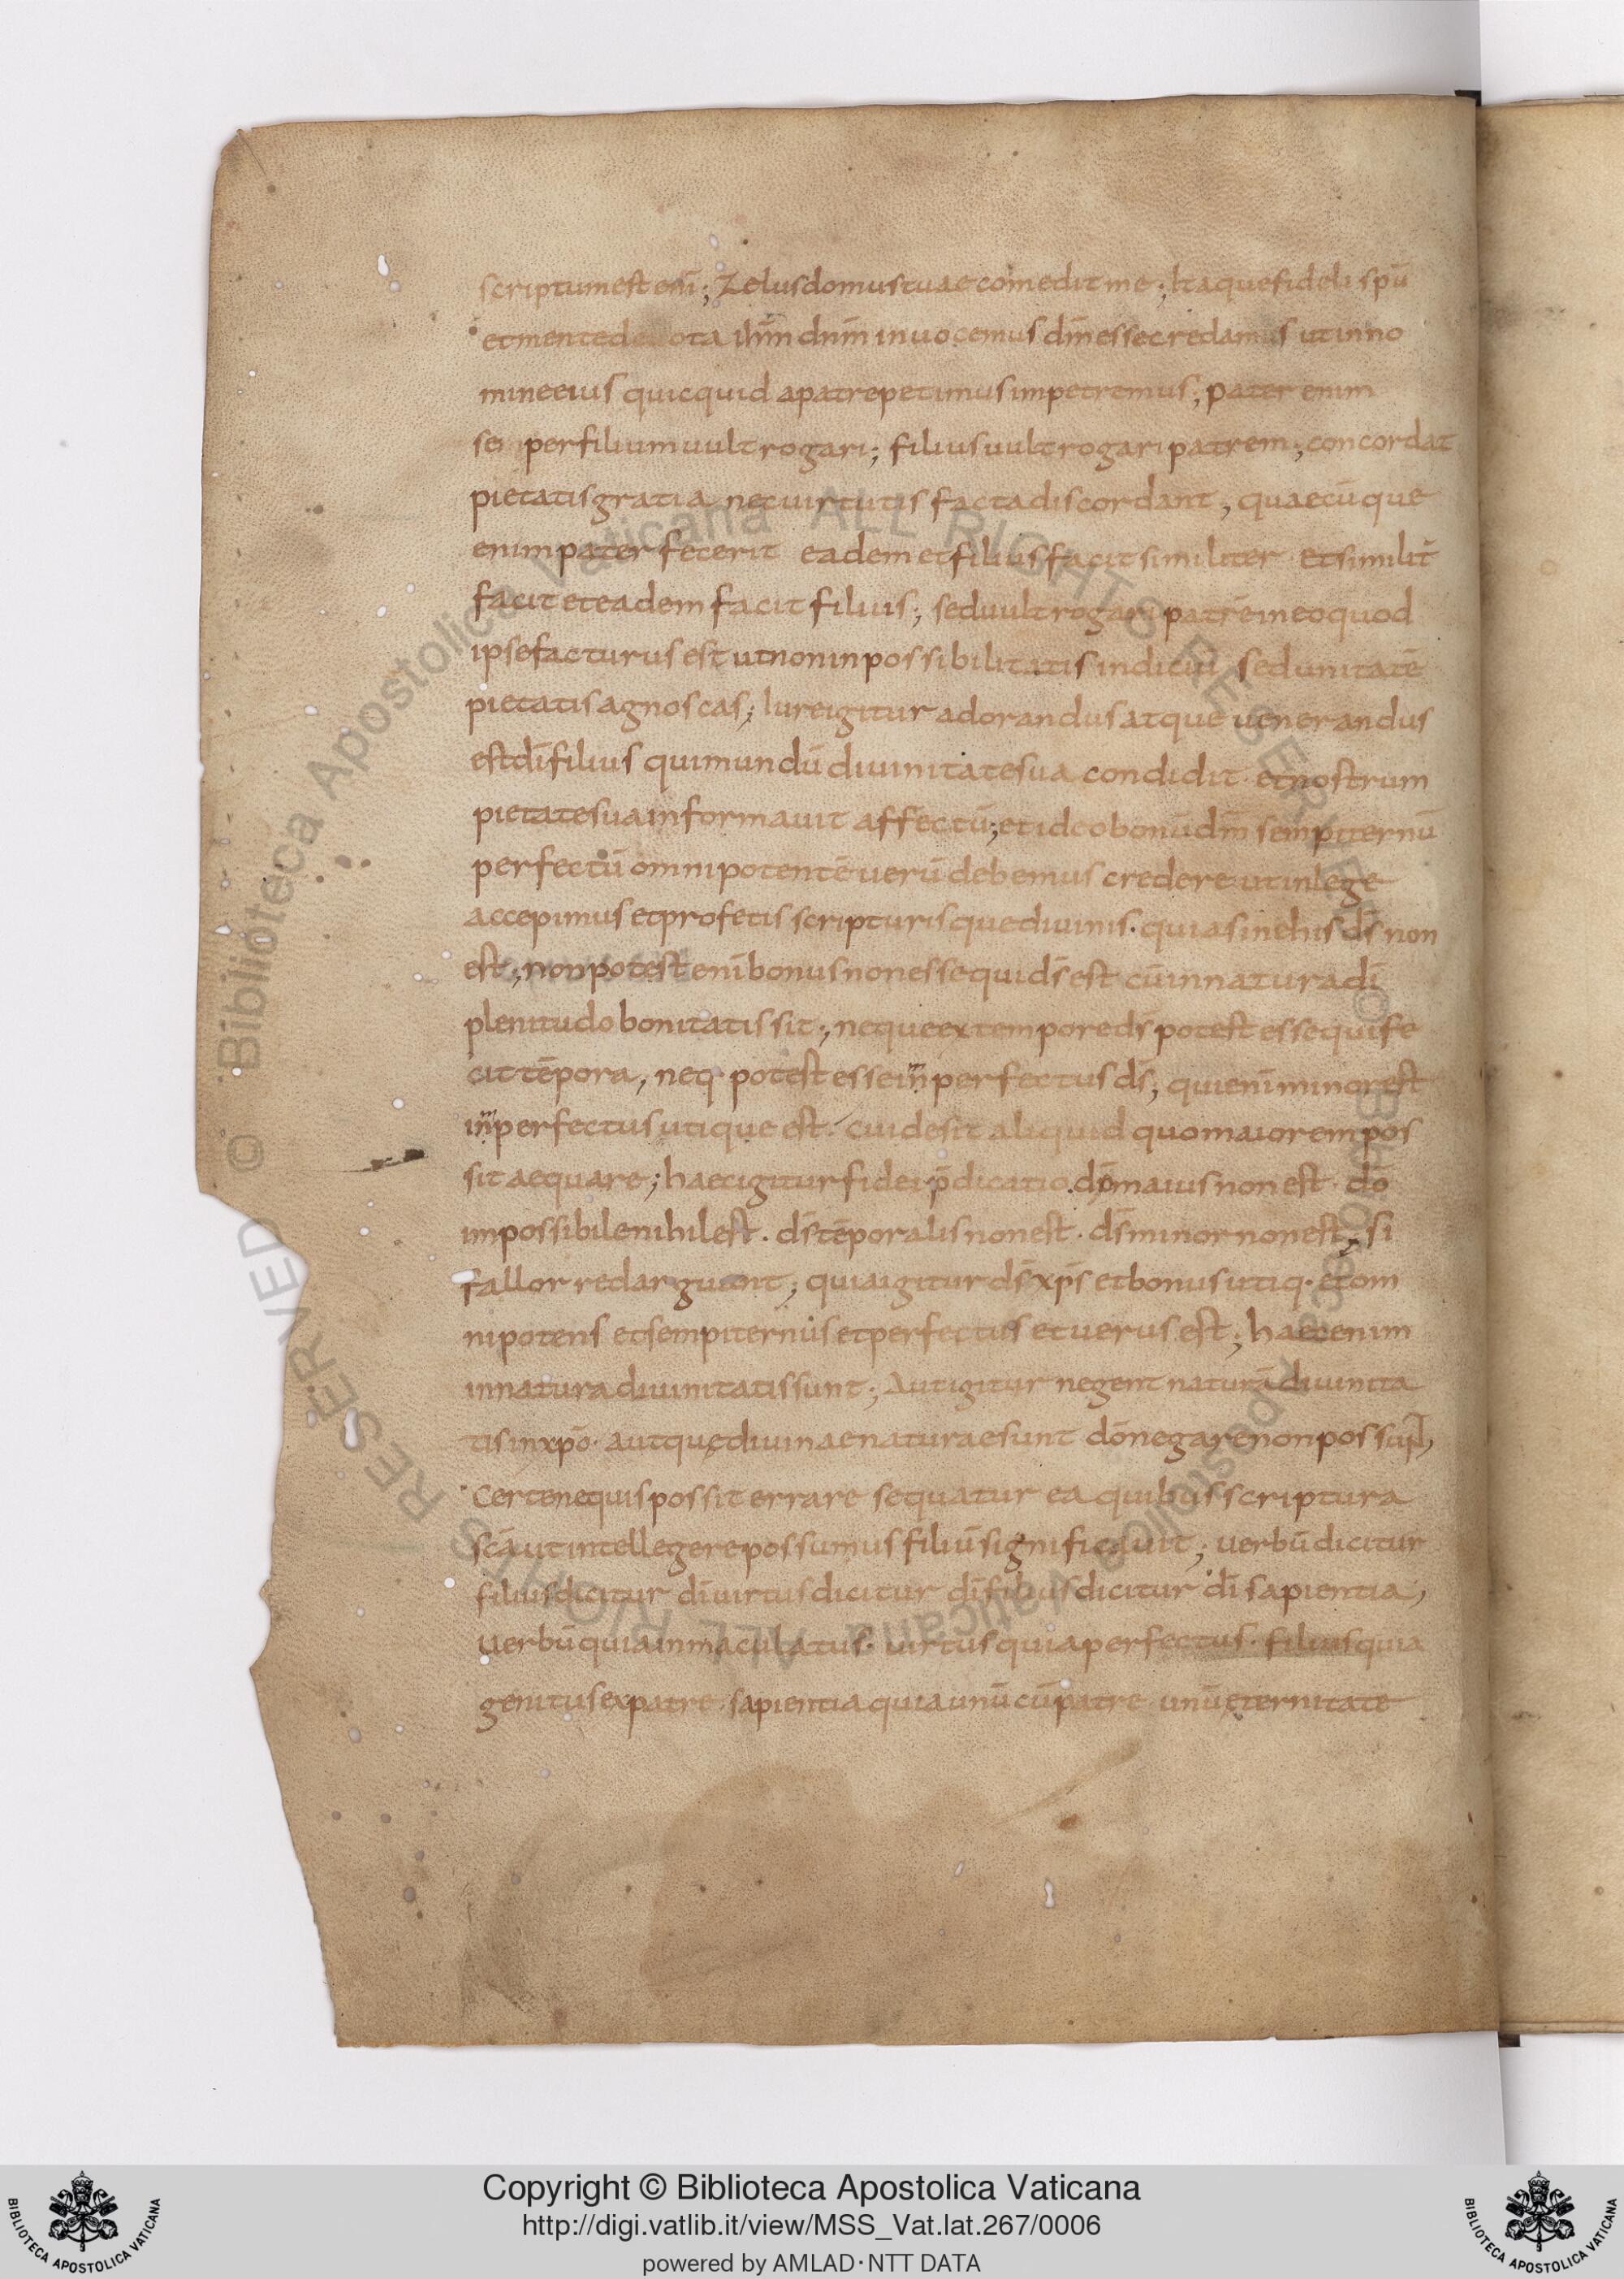 scriptum est enī; Zelus domus tuae comedit me; Itaque fideli spū
et mente deuota ihm̄ dnm̄ inuocemus dm̄ esse credamus ut in no
mine eius quicquid a patre petimus impetremus; Pater enim
per filium uult rogari; filius uult rogari patrem; concordat
pietatis gratia nec uirtutis facta discordant, quaecūque
enim pater fecerit eadem et filius facit similiter et similit̄
facit et eadem facit filius; sed uult rogari patrē in eo quod
ipse facturus est ut non inpossibilitatis indiciū sed unitatē
pietatis agnoscas; Iure igitur adorandus atque uenerandus
est dī filius qui mundū diuinitate sua condidit · et nostrum
pietate sua informauit affectū; et ideo bonū dm̄ sempiternū
perfectū omnipotentē uerū debemus credere ut in lege
accepimus et profetis scripturisque diuinis · quia sine his ds̄ non
est; non potest enī bonus non esse qui ds̄ est cū in natura dī
plenitudo bonitatis sit; neque ex tempore ds̄ potest esse qui fe
cit tēpora, neq· potest esse inperfectus ds̄, qui enī minor est
inperfectus utique est · cui desit aliquid quo maiorem pos
sit aequare; haec igitur fidei p̄dicatio dō maius non est · dō
impossibile nihil est · ds̄ tēporalis non est · ds̄ minor non est; si
fallor redarguant; quia igitur ds̄ xps̄ et bonus utiq· et om
nipotens et sempiternus et perfectus et uerus est; haec enim
in natura diuinitatis sunt; Aut igitur negent naturā diuinita
tis in xpō · aut quę diuinae naturae sunt dō negare non possunt,
Certe ne quis possit errare sequatur ea quibus scriptura
scā ut intellegere possumus filiū significauit; uerbū dicitur
filius dicitur dī uirtus dicitur dī filius dicitur dī sapientia,
uerbū quia inmaculatus · uirtus quia perfectus · filius quia
genitus ex patre · sapientia quia unū cū patre unū ęternitate
Copyright © Biblioteca Apostolica Vaticana
http://digi.vatlib.it/view/MSS_Vat.lat.267/0006
powered by AMLAD·NTT DATA
BIBLIOTECA APOSTOLICA VATICANA
BIBLIOTECA APOSTOLICA VATICANA
© Biblioteca Apostolica Vaticana ALL RIGHTS RESERVED
© Biblioteca Apostolica Vaticana ALL RIGHTS RESERVED